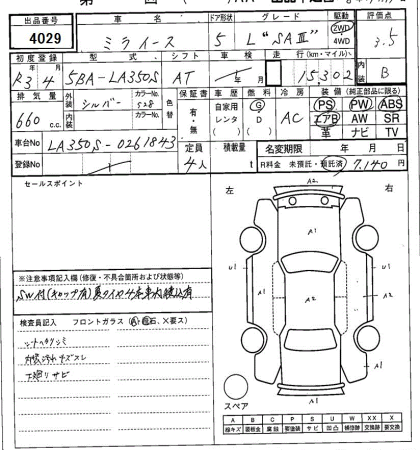 出品番号 車名 ドア形状 グレード 駆動 評価点
4029 ミライース 5 L "SAⅢ" 2WD 4WD 3.5
初度登録 型式 シフト 車検 走行(km・マイル) 内装
R3年4月 5BA-LA350S AT 年 月 15,302 B
排気量 外装 シルバー カラーNo. S28 色替 保証書 車歴 燃料 冷房 装備(純正部品に限る)
660 c.c. 内装 カラーNo. 有・無 自家用 レンタ G D AC PS PW ABS
エアB AW SR
革 ナビ TV
車台No LA350S-0261843 定員 4人 積載量 t 名変期限 年 月 日
登録No R料金 未預託・預託済 7,140 円
セールスポイント
左 右
A2
A1
U1 U1
A2
A1 A1
A1
スペア
※注意事項記入欄(修復・不具合箇所および状態等)
検査員記入 フロントガラス(A・飛石、X要ス)
シートヘタリシミ
内装汚れキズスレ
下廻りサビ
A B C P S U W X XX
線キズ 要塗装 サビ 凹凸 補修跡 交換跡